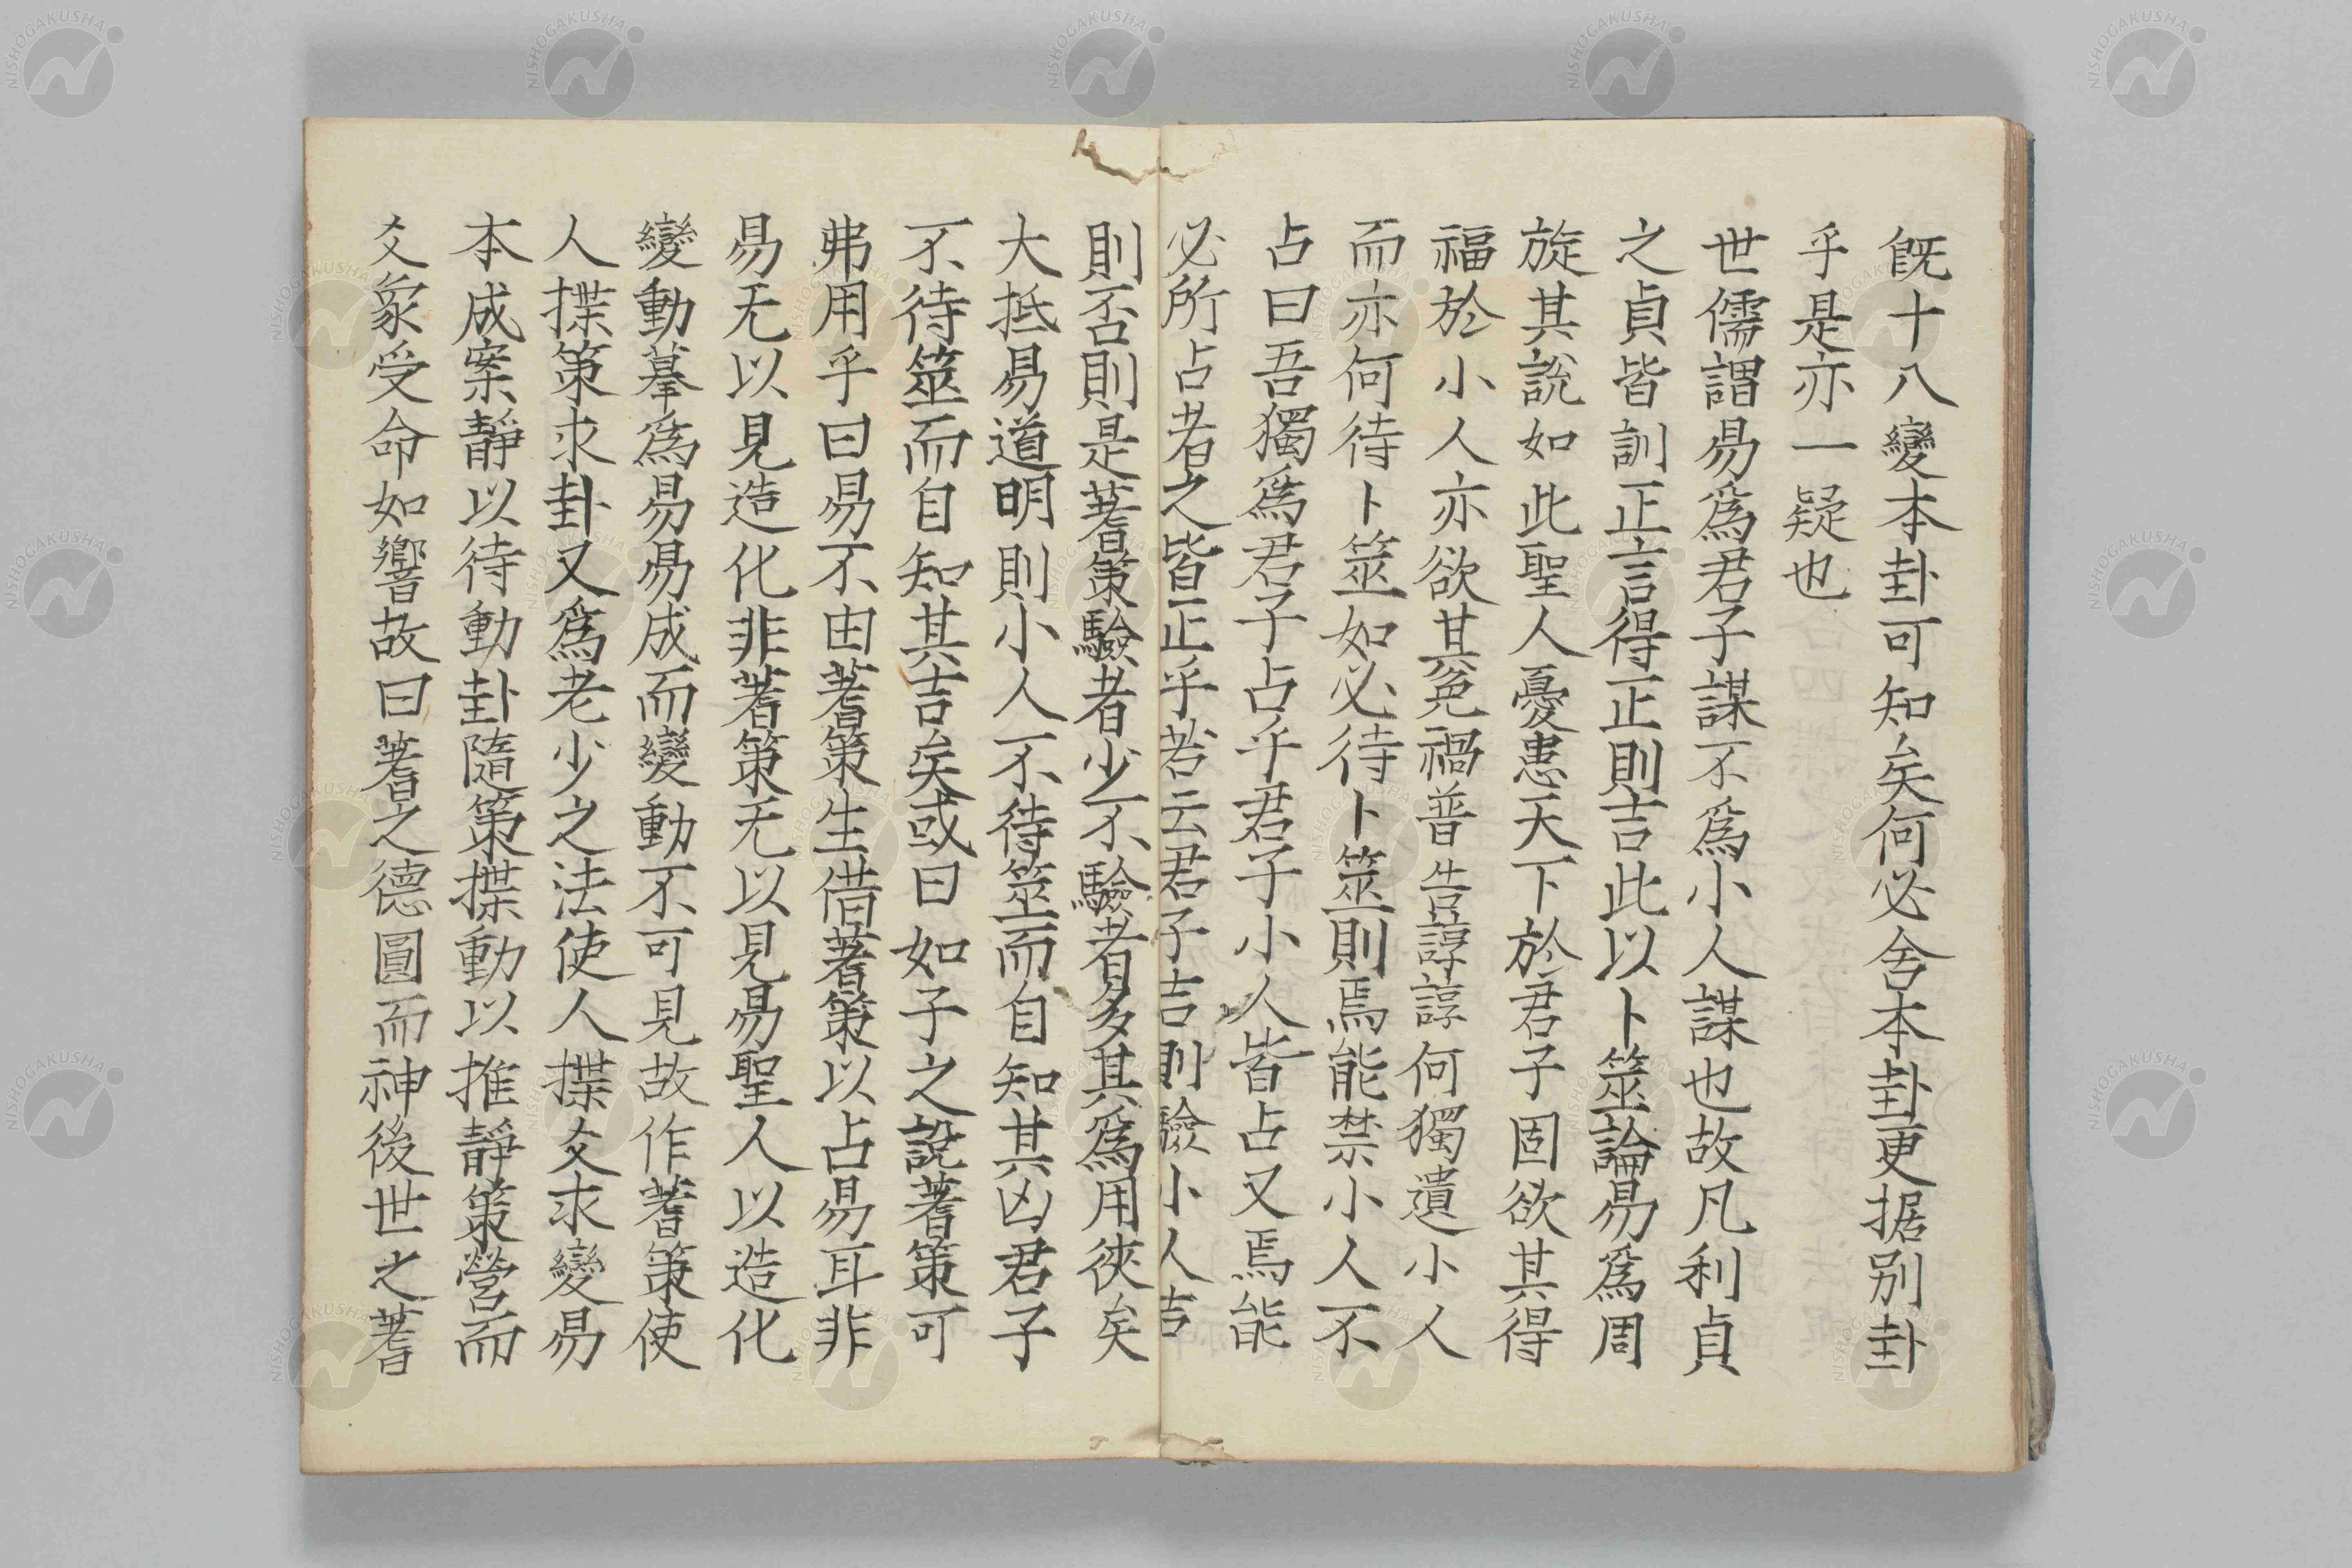 既十八變本卦可知矣何必舍本卦更据別卦
乎是亦一疑也
世儒謂易爲君子謀不爲小人謀也故凡利貞
之貞皆訓正言得正則吉此以卜筮論易爲周
旋其說如此聖人憂患天下於君子固欲其得
福於小人亦欲其免禍普告諄諄何獨遺小人
而亦何待卜筮如必待卜筮則焉能禁小人不
占曰吾獨爲君子占乎君子小人皆占又焉能
必所占者之皆正乎若云君子吉則驗小人吉
則否則是蓍策驗者少不驗者多其爲用狹矣
大抵易道明則小人不待筮而自知其凶君子
不待筮而自知其吉矣或曰如子之說蓍策可
弗用乎曰易不由蓍策生借蓍策以占易耳非
易无以見造化非蓍策无以見易聖人以造化
變動摹爲易易成而變動不可見故作蓍策使
人揲策求卦又爲老少之法使人揲爻求變易
本成案靜以待動卦隨策揲動以推靜策營而
爻象受命如響故曰蓍之德圓而神後世之蓍
NISHOGAKUSHA